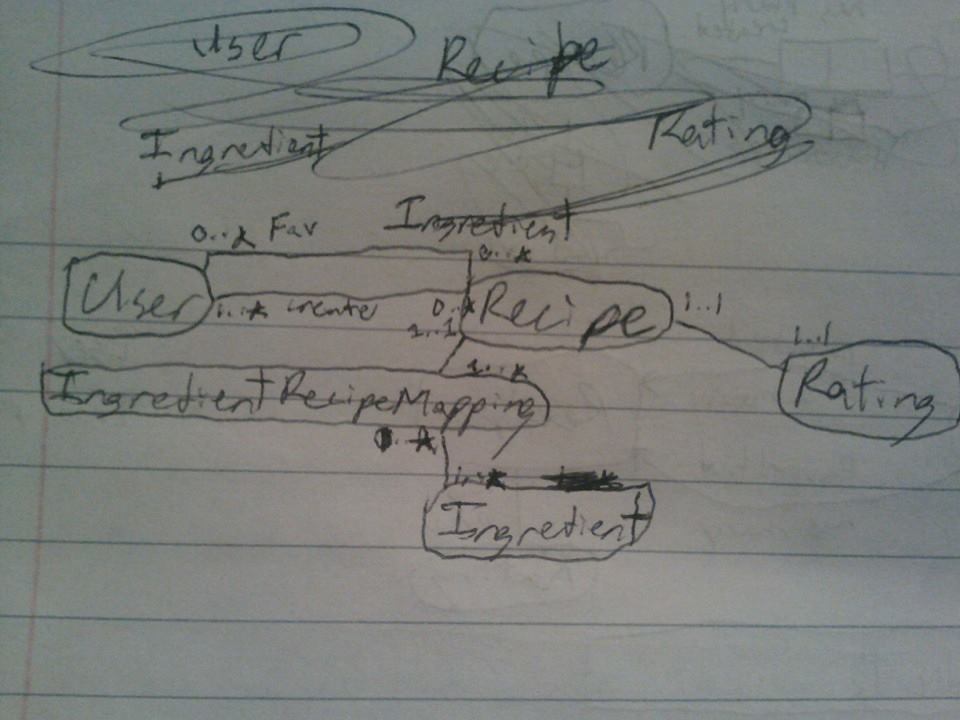 User
Recipe
Ingredient
Rating
Ingredient
0..* Fav
0..*
User
1..* creates 0..*
Recipe
1..1
1..1
1..1
Rating
1..*
IngredientRecipeMapping
0..*
1..*
Ingredient